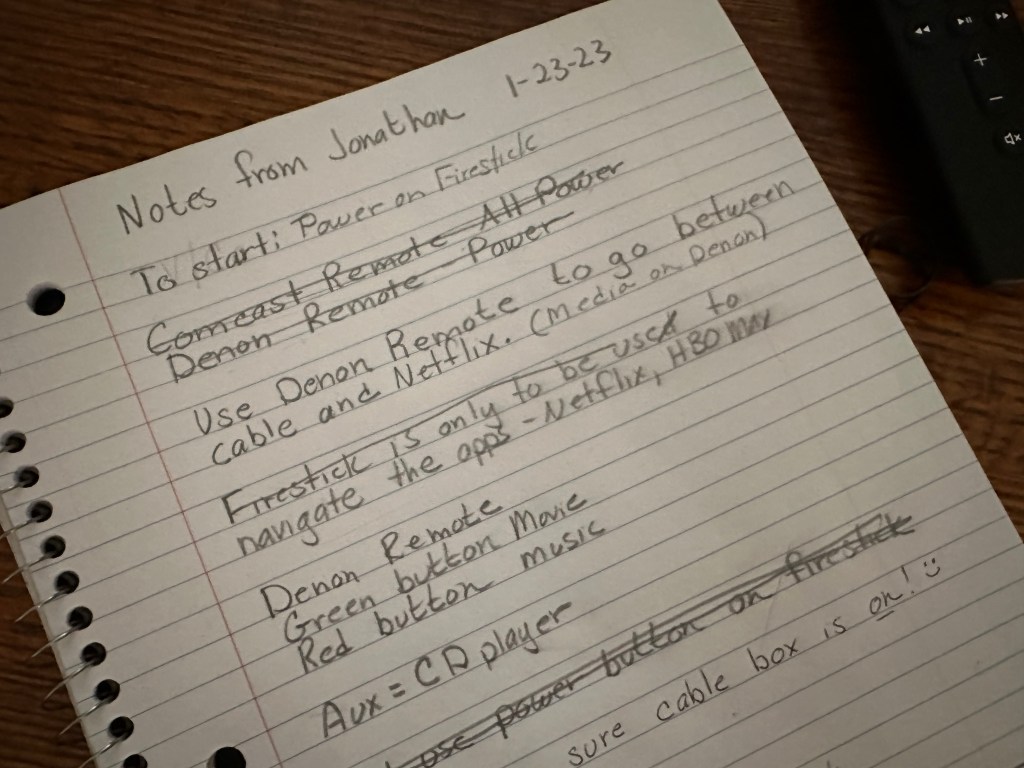 Notes from Jonathan 1-23-23
To start: Power on Firestick
Comcast Remote All Power
Denon Remote - Power
Use Denon Remote to go between
cable and Netflix. (Media on Denon)
Firestick is only to be used to
navigate the apps - Netflix, HBO MAX
Denon Remote
Green button Movie
Red button music
Aux = CD player
use power button on firestick
sure cable box is on! :)